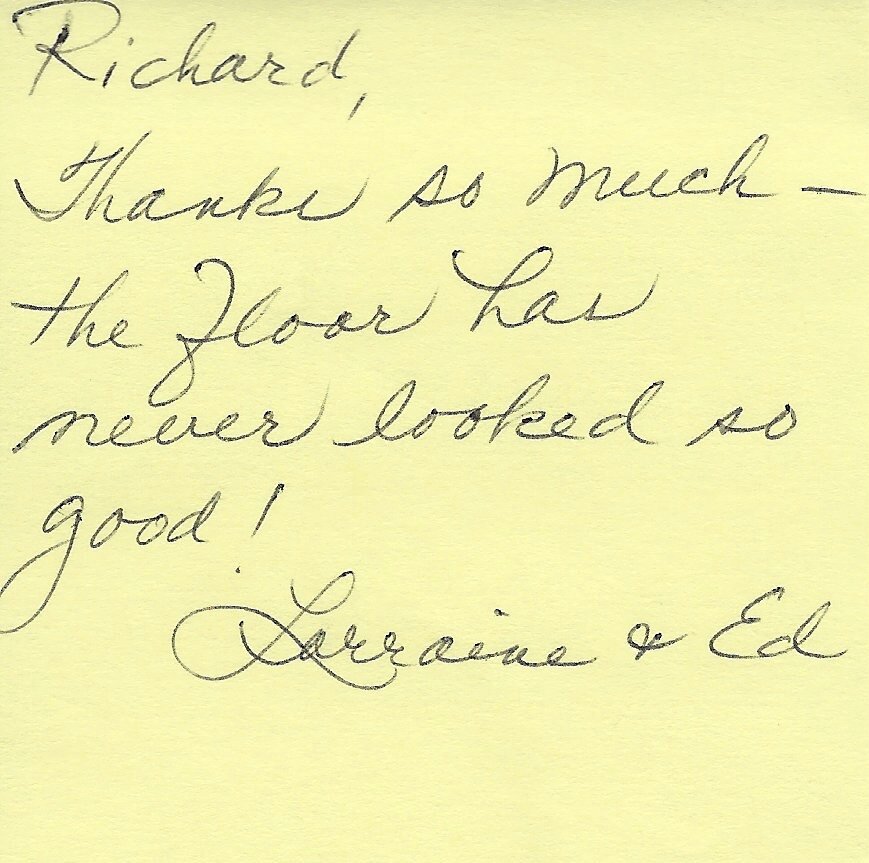 Richard,
Thanks so much —
the floor has
never looked so
good!
Lorraine & Ed